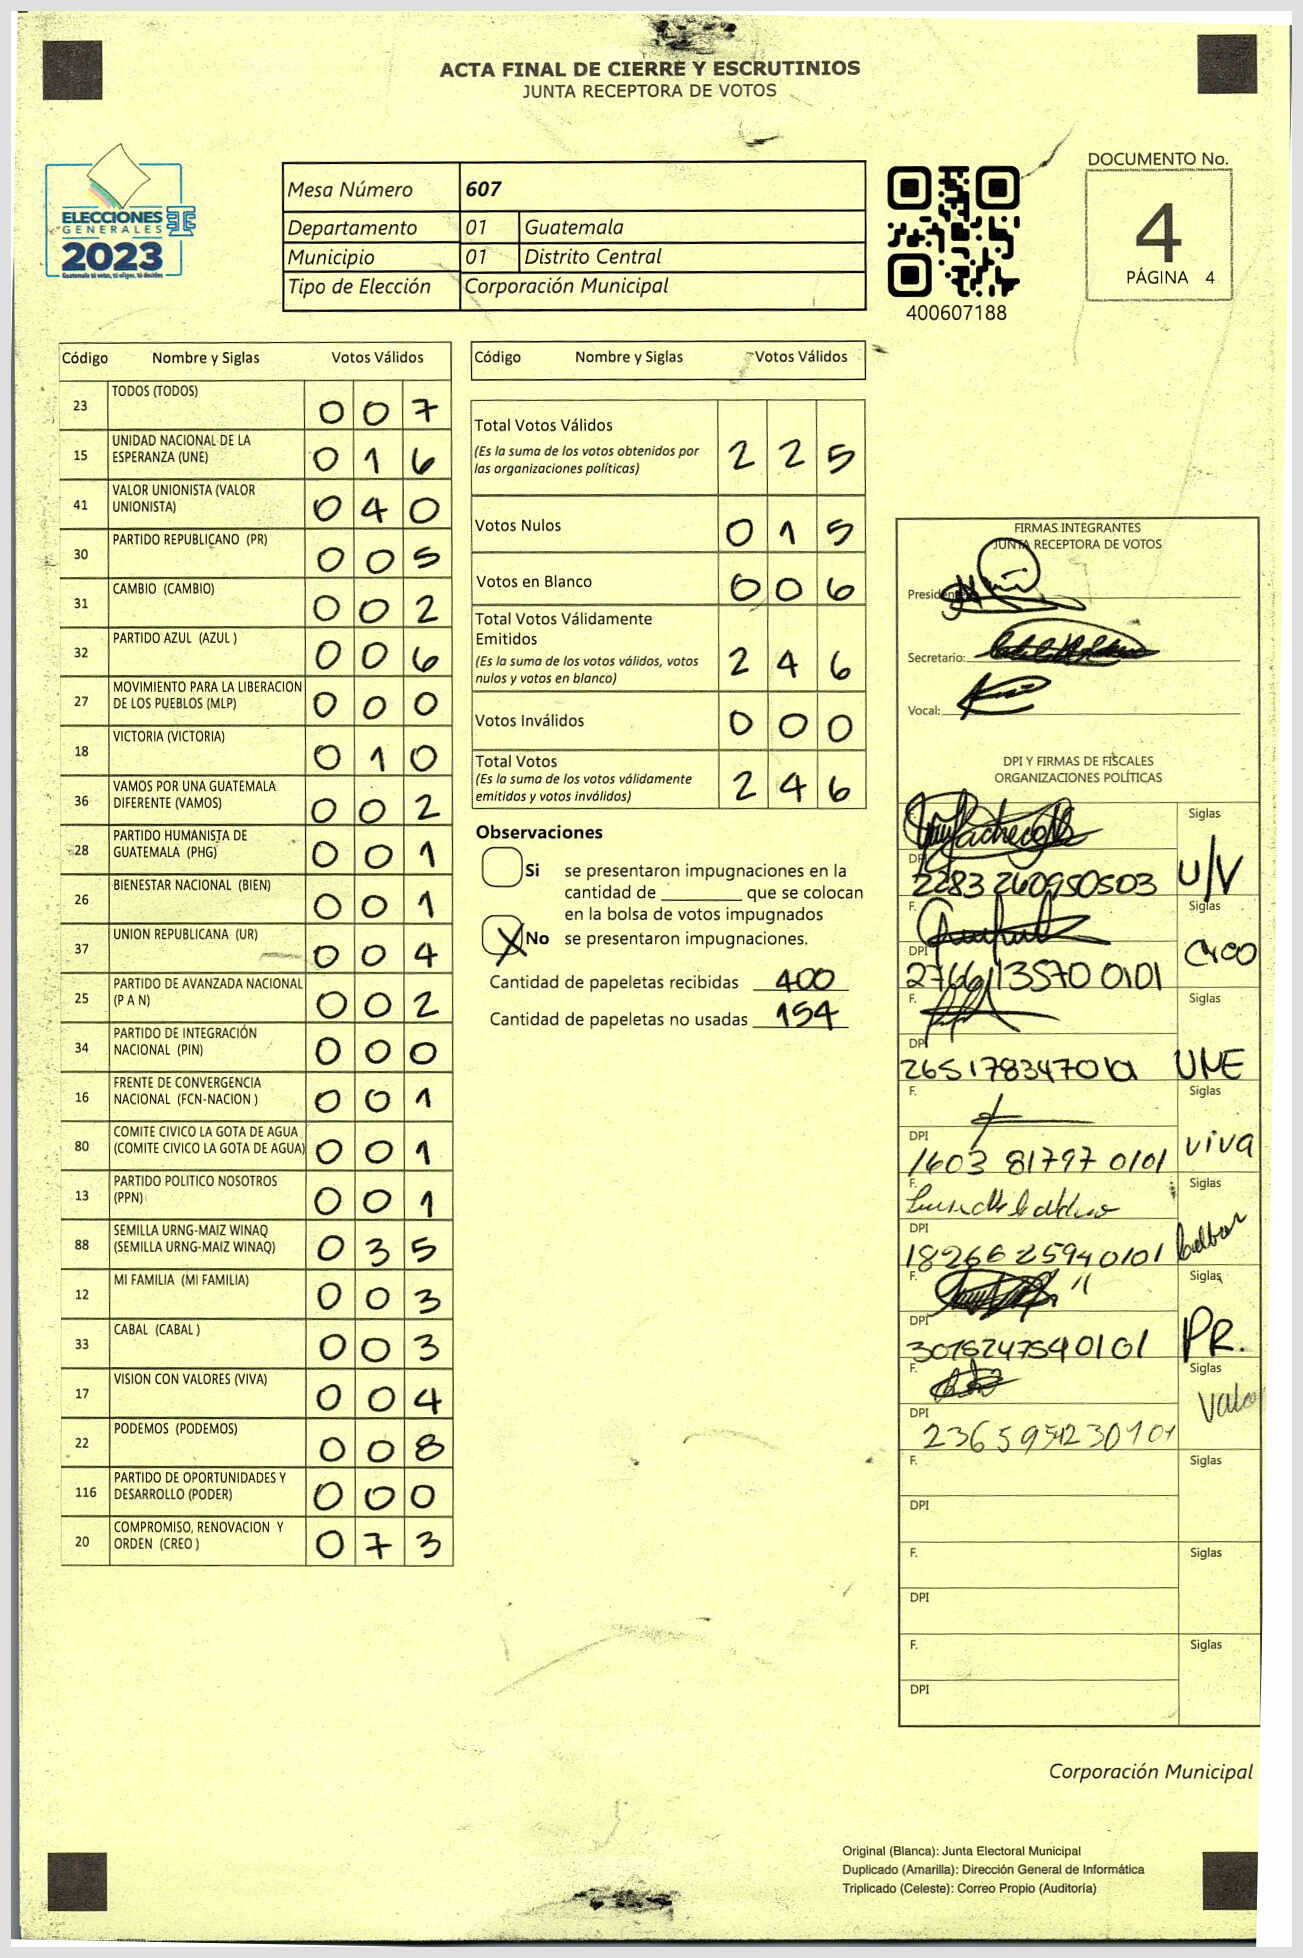 ACTA FINAL DE CIERRE Y ESCRUTINIOS
JUNTA RECEPTORA DE VOTOS
ELECCIONES
GENERALES
2023
Guatemala tú votas, tú eliges, tú decides
Mesa Número 607
Departamento 01 Guatemala
Municipio 01 Distrito Central
Tipo de Elección Corporación Municipal
400607188
DOCUMENTO No.
4
PÁGINA 4
Código Nombre y Siglas Votos Válidos
23 TODOS (TODOS) 0 0 7
15 UNIDAD NACIONAL DE LA
ESPERANZA (UNE) 0 1 6
41 VALOR UNIONISTA (VALOR
UNIONISTA) 0 4 0
30 PARTIDO REPUBLICANO (PR) 0 0 5
31 CAMBIO (CAMBIO) 0 0 2
32 PARTIDO AZUL (AZUL ) 0 0 6
27 MOVIMIENTO PARA LA LIBERACION
DE LOS PUEBLOS (MLP) 0 0 0
18 VICTORIA (VICTORIA) 0 1 0
36 VAMOS POR UNA GUATEMALA
DIFERENTE (VAMOS) 0 0 2
28 PARTIDO HUMANISTA DE
GUATEMALA (PHG) 0 0 1
26 BIENESTAR NACIONAL (BIEN) 0 0 1
37 UNION REPUBLICANA (UR) 0 0 4
25 PARTIDO DE AVANZADA NACIONAL
(P A N) 0 0 2
34 PARTIDO DE INTEGRACIÓN
NACIONAL (PIN) 0 0 0
16 FRENTE DE CONVERGENCIA
NACIONAL (FCN-NACION ) 0 0 1
80 COMITE CIVICO LA GOTA DE AGUA
(COMITE CIVICO LA GOTA DE AGUA) 0 0 1
13 PARTIDO POLITICO NOSOTROS
(PPN) 0 0 1
88 SEMILLA URNG-MAIZ WINAQ
(SEMILLA URNG-MAIZ WINAQ) 0 3 5
12 MI FAMILIA (MI FAMILIA) 0 0 3
33 CABAL (CABAL ) 0 0 3
17 VISION CON VALORES (VIVA) 0 0 4
22 PODEMOS (PODEMOS) 0 0 8
116 PARTIDO DE OPORTUNIDADES Y
DESARROLLO (PODER) 0 0 0
20 COMPROMISO, RENOVACION Y
ORDEN (CREO ) 0 7 3
Código Nombre y Siglas Votos Válidos
Total Votos Válidos
(Es la suma de los votos obtenidos por
las organizaciones políticas) 2 2 5
Votos Nulos 0 1 5
Votos en Blanco 0 0 6
Total Votos Válidamente
Emitidos
(Es la suma de los votos válidos, votos
nulos y votos en blanco) 2 4 6
Votos Inválidos 0 0 0
Total Votos
(Es la suma de los votos válidamente
emitidos y votos inválidos) 2 4 6
Observaciones
Si se presentaron impugnaciones en la
cantidad de ________ que se colocan
en la bolsa de votos impugnados
X No se presentaron impugnaciones.
Cantidad de papeletas recibidas 400
Cantidad de papeletas no usadas 154
FIRMAS INTEGRANTES
JUNTA RECEPTORA DE VOTOS
Presidente:
Secretario:
Vocal:
DPI Y FIRMAS DE FISCALES
ORGANIZACIONES POLÍTICAS
Siglas
DPI
2283 260950503 U/V
F. Siglas
DPI
2766113570 0101
F. Siglas
DPI
2651783470101 UNE
F. Siglas
DPI
1603 81797 0101 viva
F. Siglas
DPI
18266 25940101
F. Siglas
DPI
3015247540101 PR.
F. Siglas
DPI
Valo
F. Siglas
DPI
F. Siglas
DPI
F. Siglas
DPI
Corporación Municipal
Original (Blanca): Junta Electoral Municipal
Duplicado (Amarilla): Dirección General de Informática
Triplicado (Celeste): Correo Propio (Auditoría)